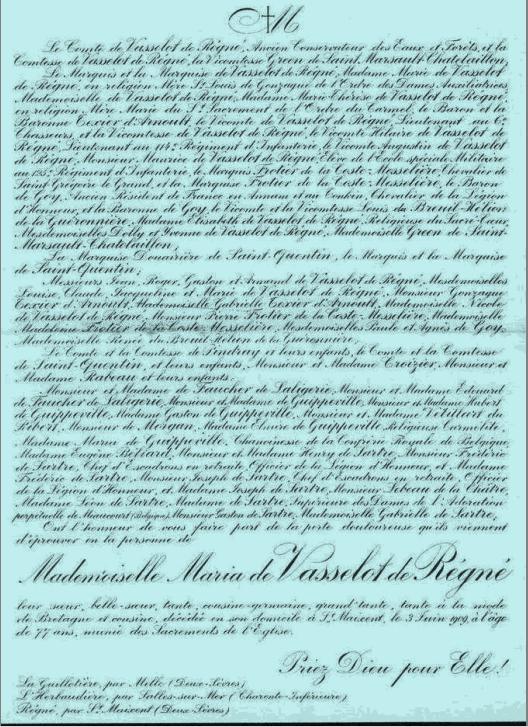 M
Le Comte de Vasselot de Régné, Ancien Conservateur des Eaux et Forêts, et la
Comtesse de Vasselot de Régné, la Vicomtesse Green de Saint-Marsault-Chatelaillon,
Le Marquis et la Marquise de Vasselot de Régné, Madame Marie de Vasselot
de Régné, en religion Mère St. Louis de Gonzague de l'Ordre des Dames Auxiliatrices,
Mademoiselle de Vasselot de Régné, Madame Marie-Thérèse de Vasselot de Régné,
en religion Mère Marie du St. Sacrement de l'Ordre du Carmel, le Baron et la
Baronne Texier d'Arnoult, le Vicomte de Vasselot de Régné, Lieutenant au 6e
Chasseurs, et la Vicomtesse de Vasselot de Régné, le Vicomte Hilaire de Vasselot de
Régné, Lieutenant au 114e Régiment d'Infanterie, le Vicomte Augustin de Vasselot
de Régné, Monsieur Maurice de Vasselot de Régné, Elève de l'Ecole spéciale Militaire
au 125e Régiment d'Infanterie, le Marquis Frotier de la Coste-Messelière, Chevalier de
Saint Grégoire le Grand, et la Marquise Frotier de la Coste-Messelière, le Baron
de Goy, Ancien Résident de France en Annam et au Tonkin, Chevalier de la Légion
d'Honneur, et la Baronne de Goy, le Vicomte et la Vicomtesse Louis du Breuil-Hélion
de la Guéronnière, Madame Elisabeth de Vasselot de Régné, Religieuse du Sacré-Cœur,
Mesdemoiselles Dolly et Yvonne de Vasselot de Régné, Mademoiselle Green de Saint-
Marsault-Chatelaillon,
La Marquise Douairière de Saint-Quentin, le Marquis et la Marquise
de Saint-Quentin;
Messieurs Jean, Roger, Gaston et Arnaud de Vasselot de Régné, Mesdemoiselles
Louise, Claude, Jacqueline et Marie de Vasselot de Régné, Monsieur Gonzague
Texier d'Arnoult, Mademoiselle Gabrielle Texier d'Arnoult, Mademoiselle Nicole
de Vasselot de Régné, Monsieur Pierre Frotier de la Coste-Messelière, Mademoiselle
Madeleine Frotier de la Coste-Messelière, Mesdemoiselles Paule et Agnès de Goy,
Mademoiselle Renée du Breuil-Hélion de la Guéronnière,
Le Comte et la Comtesse de Pindray et leurs enfants, le Comte et la Comtesse
de Saint-Quentin, et leurs enfants, Monsieur et Madame Croizier, Monsieur et
Madame Rabeau et leurs enfants,
Monsieur et Madame de Faucher de Laligerie, Monsieur et Madame Edouard
de Faucher de Laligerie, Monsieur et Madame de Guipperville, Monsieur et Madame Hubert
de Guipperville, Madame Gaston de Guipperville, Monsieur et Madame Vétillart du
Ribert, Monsieur de Morgan, Madame de Guipperville Religieuse Carmélite,
Madame Maria de Guipperville, Chanoinesse de la Confrérie Royale de Belgique,
Madame Eugène Monsieur et Madame Henry de Sartre, Monsieur Frédéric
de Sartre, Chef d'Escadrons en retraite, Officier de la Légion d'Honneur, et Madame
Frédéric de Sartre, Monsieur Joseph de Sartre, Chef d'Escadrons en retraite, Officier
de la Légion d'Honneur, et Madame Joseph de Sartre, Monsieur
Madame Léon de Sartre, Madame de Sartre, Supérieure des Dames de l'Adoration
perpétuelle de (Belgique), Monsieur Gaston de Sartre, Mademoiselle Gabrielle de Sartre,
Ont l'honneur de vous faire part de la perte douloureuse qu'ils viennent
d'éprouver en la personne de
Mademoiselle Maria de Vasselot de Régné
leur sœur, belle-sœur, tante, cousine-germaine, grand'tante, tante à la mode
de Bretagne et cousine, décédée en son domicile à St. Maixent, le 3 Juin 1909, à l'âge
de 77 ans, munie des Sacrements de l'Eglise.
Priez Dieu pour Elle!
La Guillotière, par Melle (Deux-Sèvres)
L'Herbaudière, par Salles-sur-Mer (Charente-Inférieure)
Régné, par St. Maixent (Deux-Sèvres)